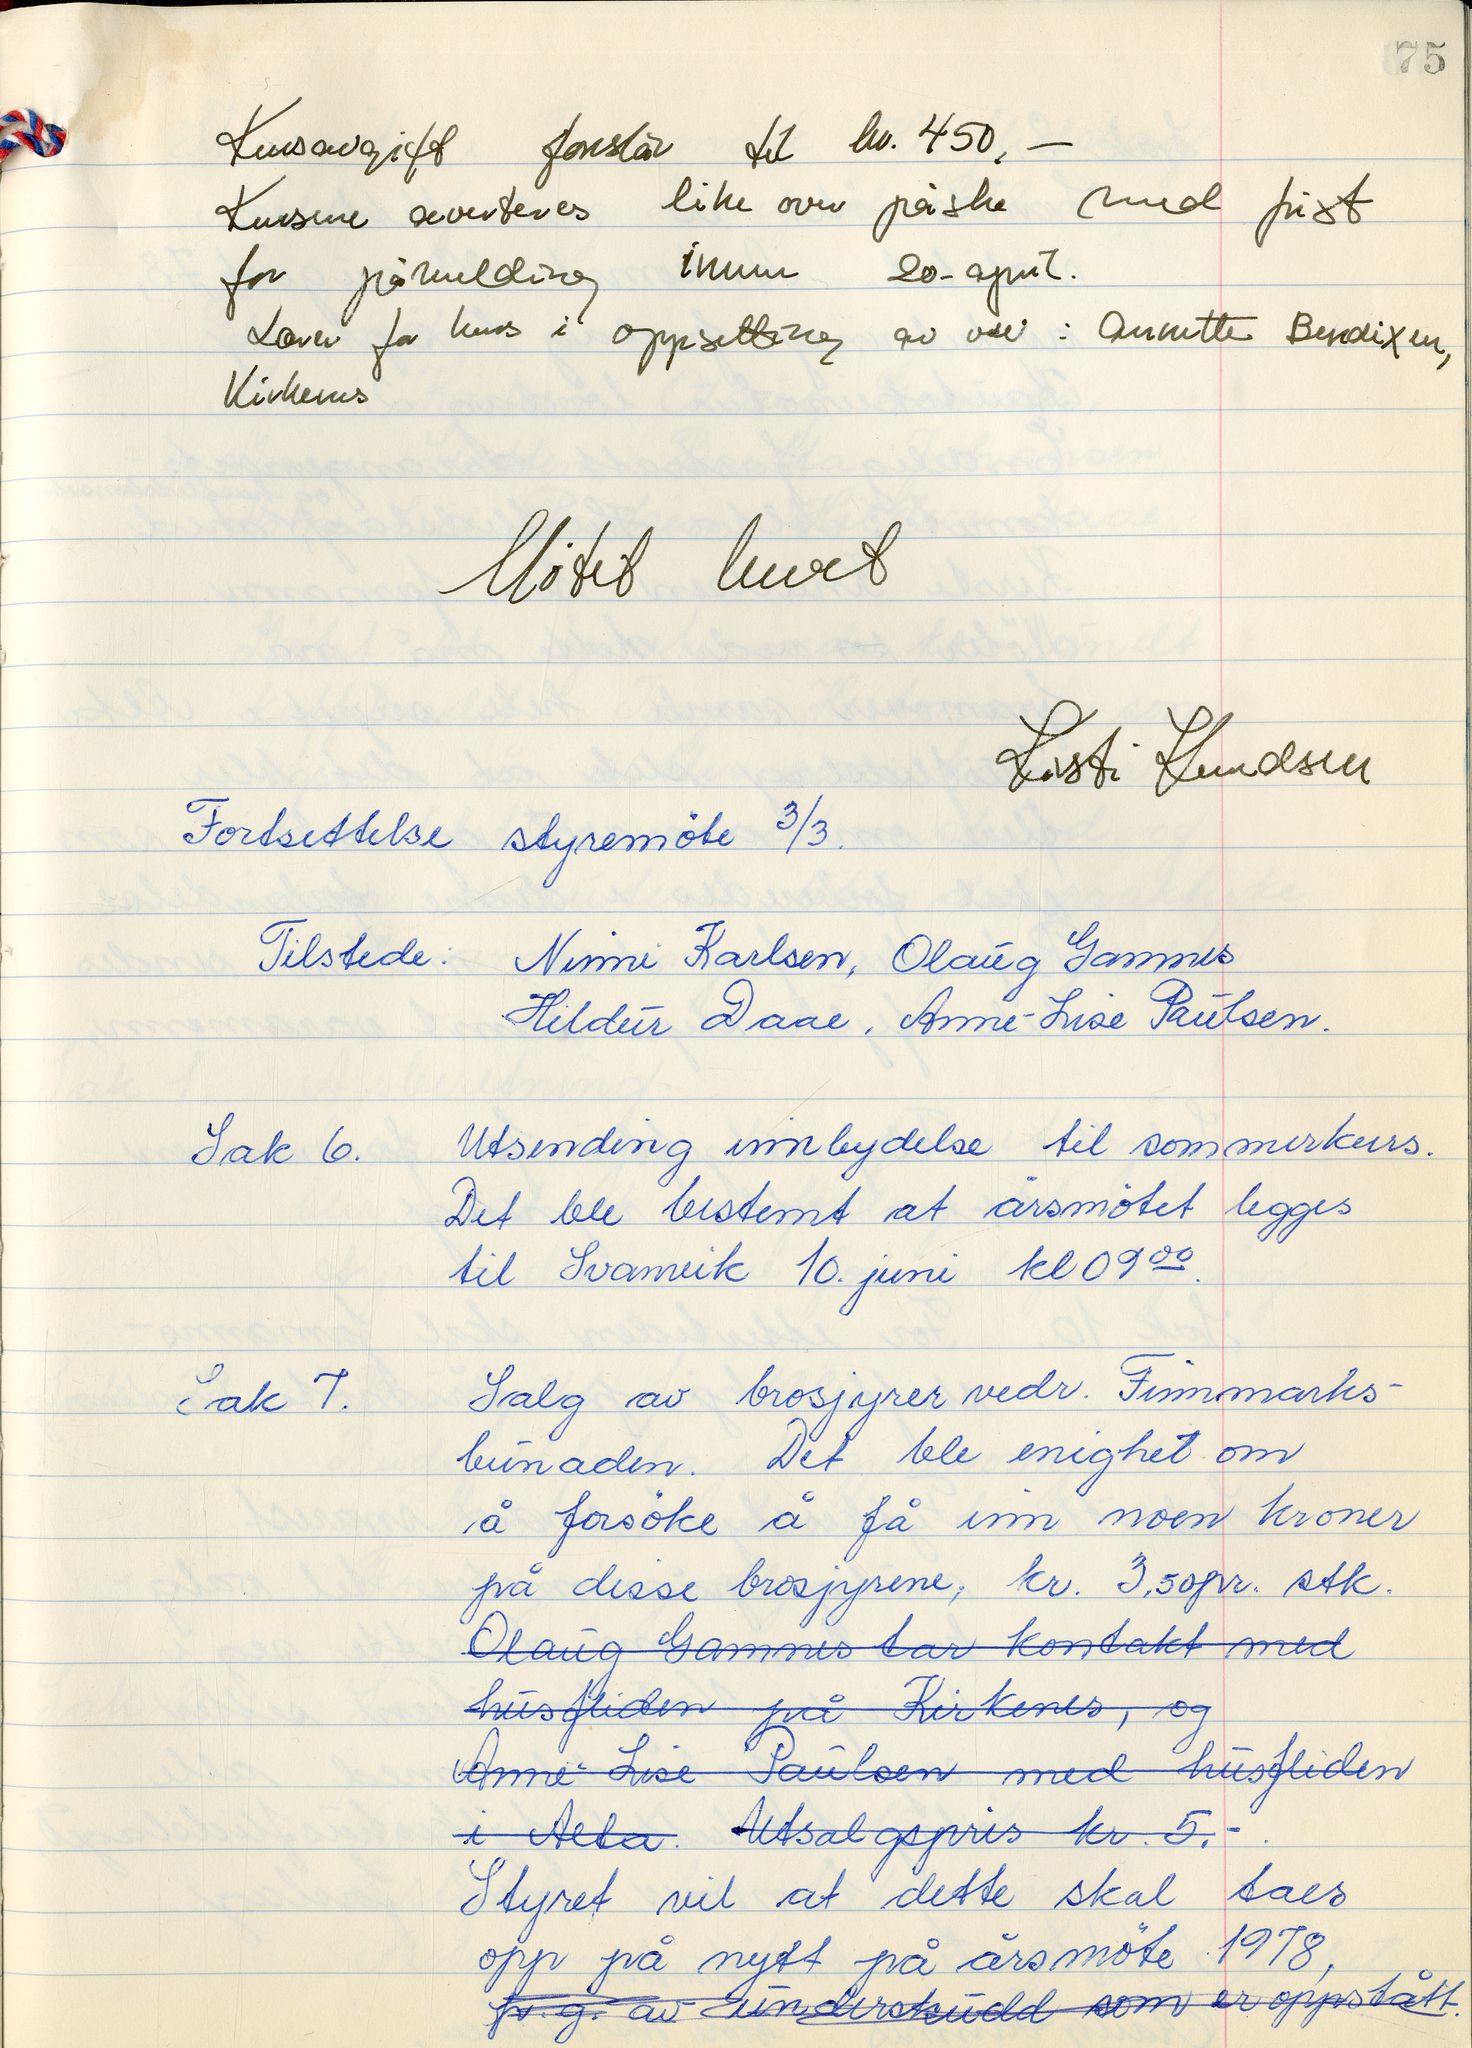 75
Kursavgift foreslår til kr. 450,-
Kursene averteres like over påske med frist
for påmelding innen 20-april.
Lærer for kurs i oppsetting av vev: Annette Bendixen,
Kirkenes
Møtet hevet
Kirsti Knudsen
Fortsettelse styremöte 3/3.
Tilstede: Ninni Karlsen, Olaug Gamnes
Hildur Daae, Anne-Lise Paulsen.
Sak 6. Utsending innbydelse til sommerkurs.
Det ble bestemt at årsmötet legges
til Svanvik 10. juni kl 09 00.
Sak 7. Salg av brosjyrer vedr. Finnmarks-
bunaden. Det ble enighet om
å forsöke å få inn noen kroner
på disse brosjyrene, kr. 3,50 pr. stk.
Olaug Gamnes tar kontakt med
husfliden på Kirkenes, og
Anne-Lise Paulsen med husfliden
i Alta. Utsalgspris kr. 5.-.
Styret vil at dette skal taes
opp på nytt på årsmöte 1978,
p.g. av underskudd som er oppstått.